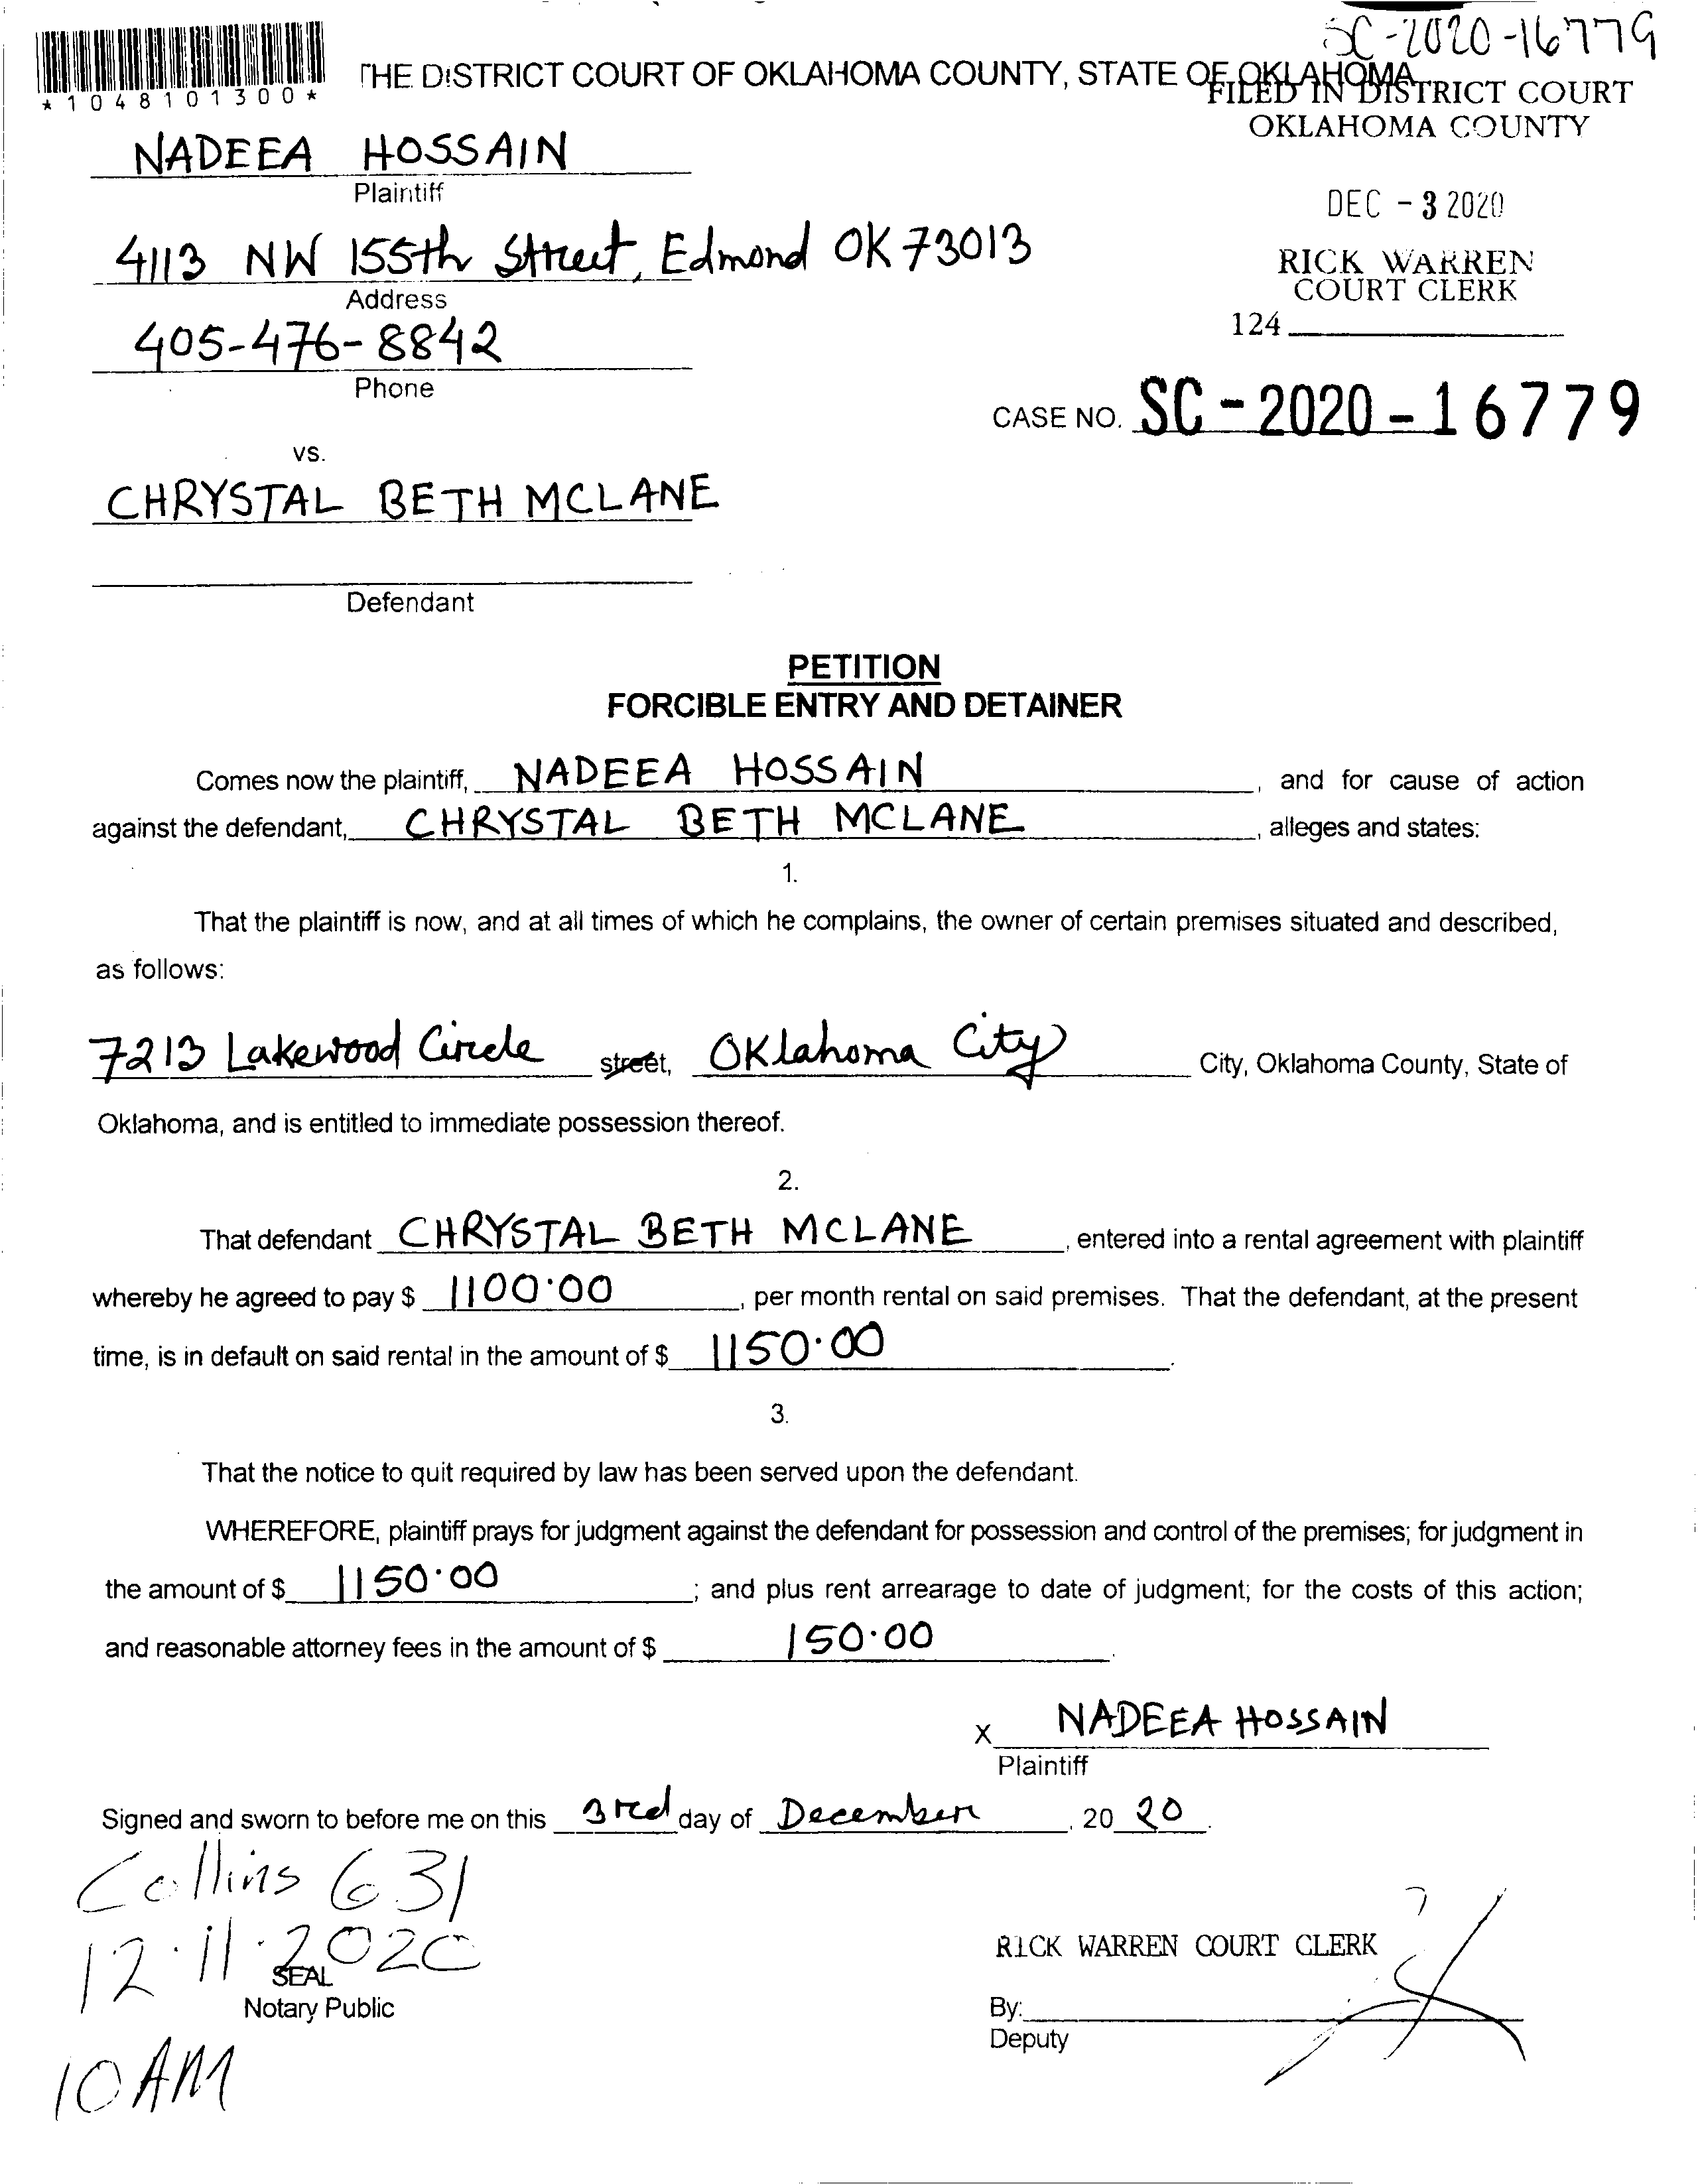 SC-2020-16779
THE DISTRICT COURT OF OKLAHOMA COUNTY, STATE OF OKLAHOMA
*1048101300*
FILED IN DISTRICT COURT
OKLAHOMA COUNTY
NADEEA HOSSAIN
Plaintiff
DEC - 3 2020
4113 NW 155th Street, Edmond OK 73013
Address
RICK WARREN
COURT CLERK
405-476-8842
124
Phone
CASE NO. SC-2020-16779
vs.
CHRYSTAL BETH MCLANE
Defendant
PETITION
FORCIBLE ENTRY AND DETAINER
Comes now the plaintiff, NADEEA HOSSAIN, and for cause of action
against the defendant, CHRYSTAL BETH MCLANE, alleges and states:
1.
That the plaintiff is now, and at all times of which he complains, the owner of certain premises situated and described,
as follows:
7213 Lakewood Circle street, Oklahoma City City, Oklahoma County, State of
Oklahoma, and is entitled to immediate possession thereof.
2.
That defendant CHRYSTAL BETH MCLANE, entered into a rental agreement with plaintiff
whereby he agreed to pay $ 1100.00, per month rental on said premises. That the defendant, at the present
time, is in default on said rental in the amount of $ 1150.00.
3.
That the notice to quit required by law has been served upon the defendant.
WHEREFORE, plaintiff prays for judgment against the defendant for possession and control of the premises; for judgment in
the amount of $ 1150.00; and plus rent arrearage to date of judgment; for the costs of this action;
and reasonable attorney fees in the amount of $ 150.00.
X NADEEA HOSSAIN
Plaintiff
Signed and sworn to before me on this 3rd day of December, 20 20.
Collins 631
12.11.2020
SEAL
Notary Public
10 AM
RICK WARREN COURT CLERK
By:
Deputy